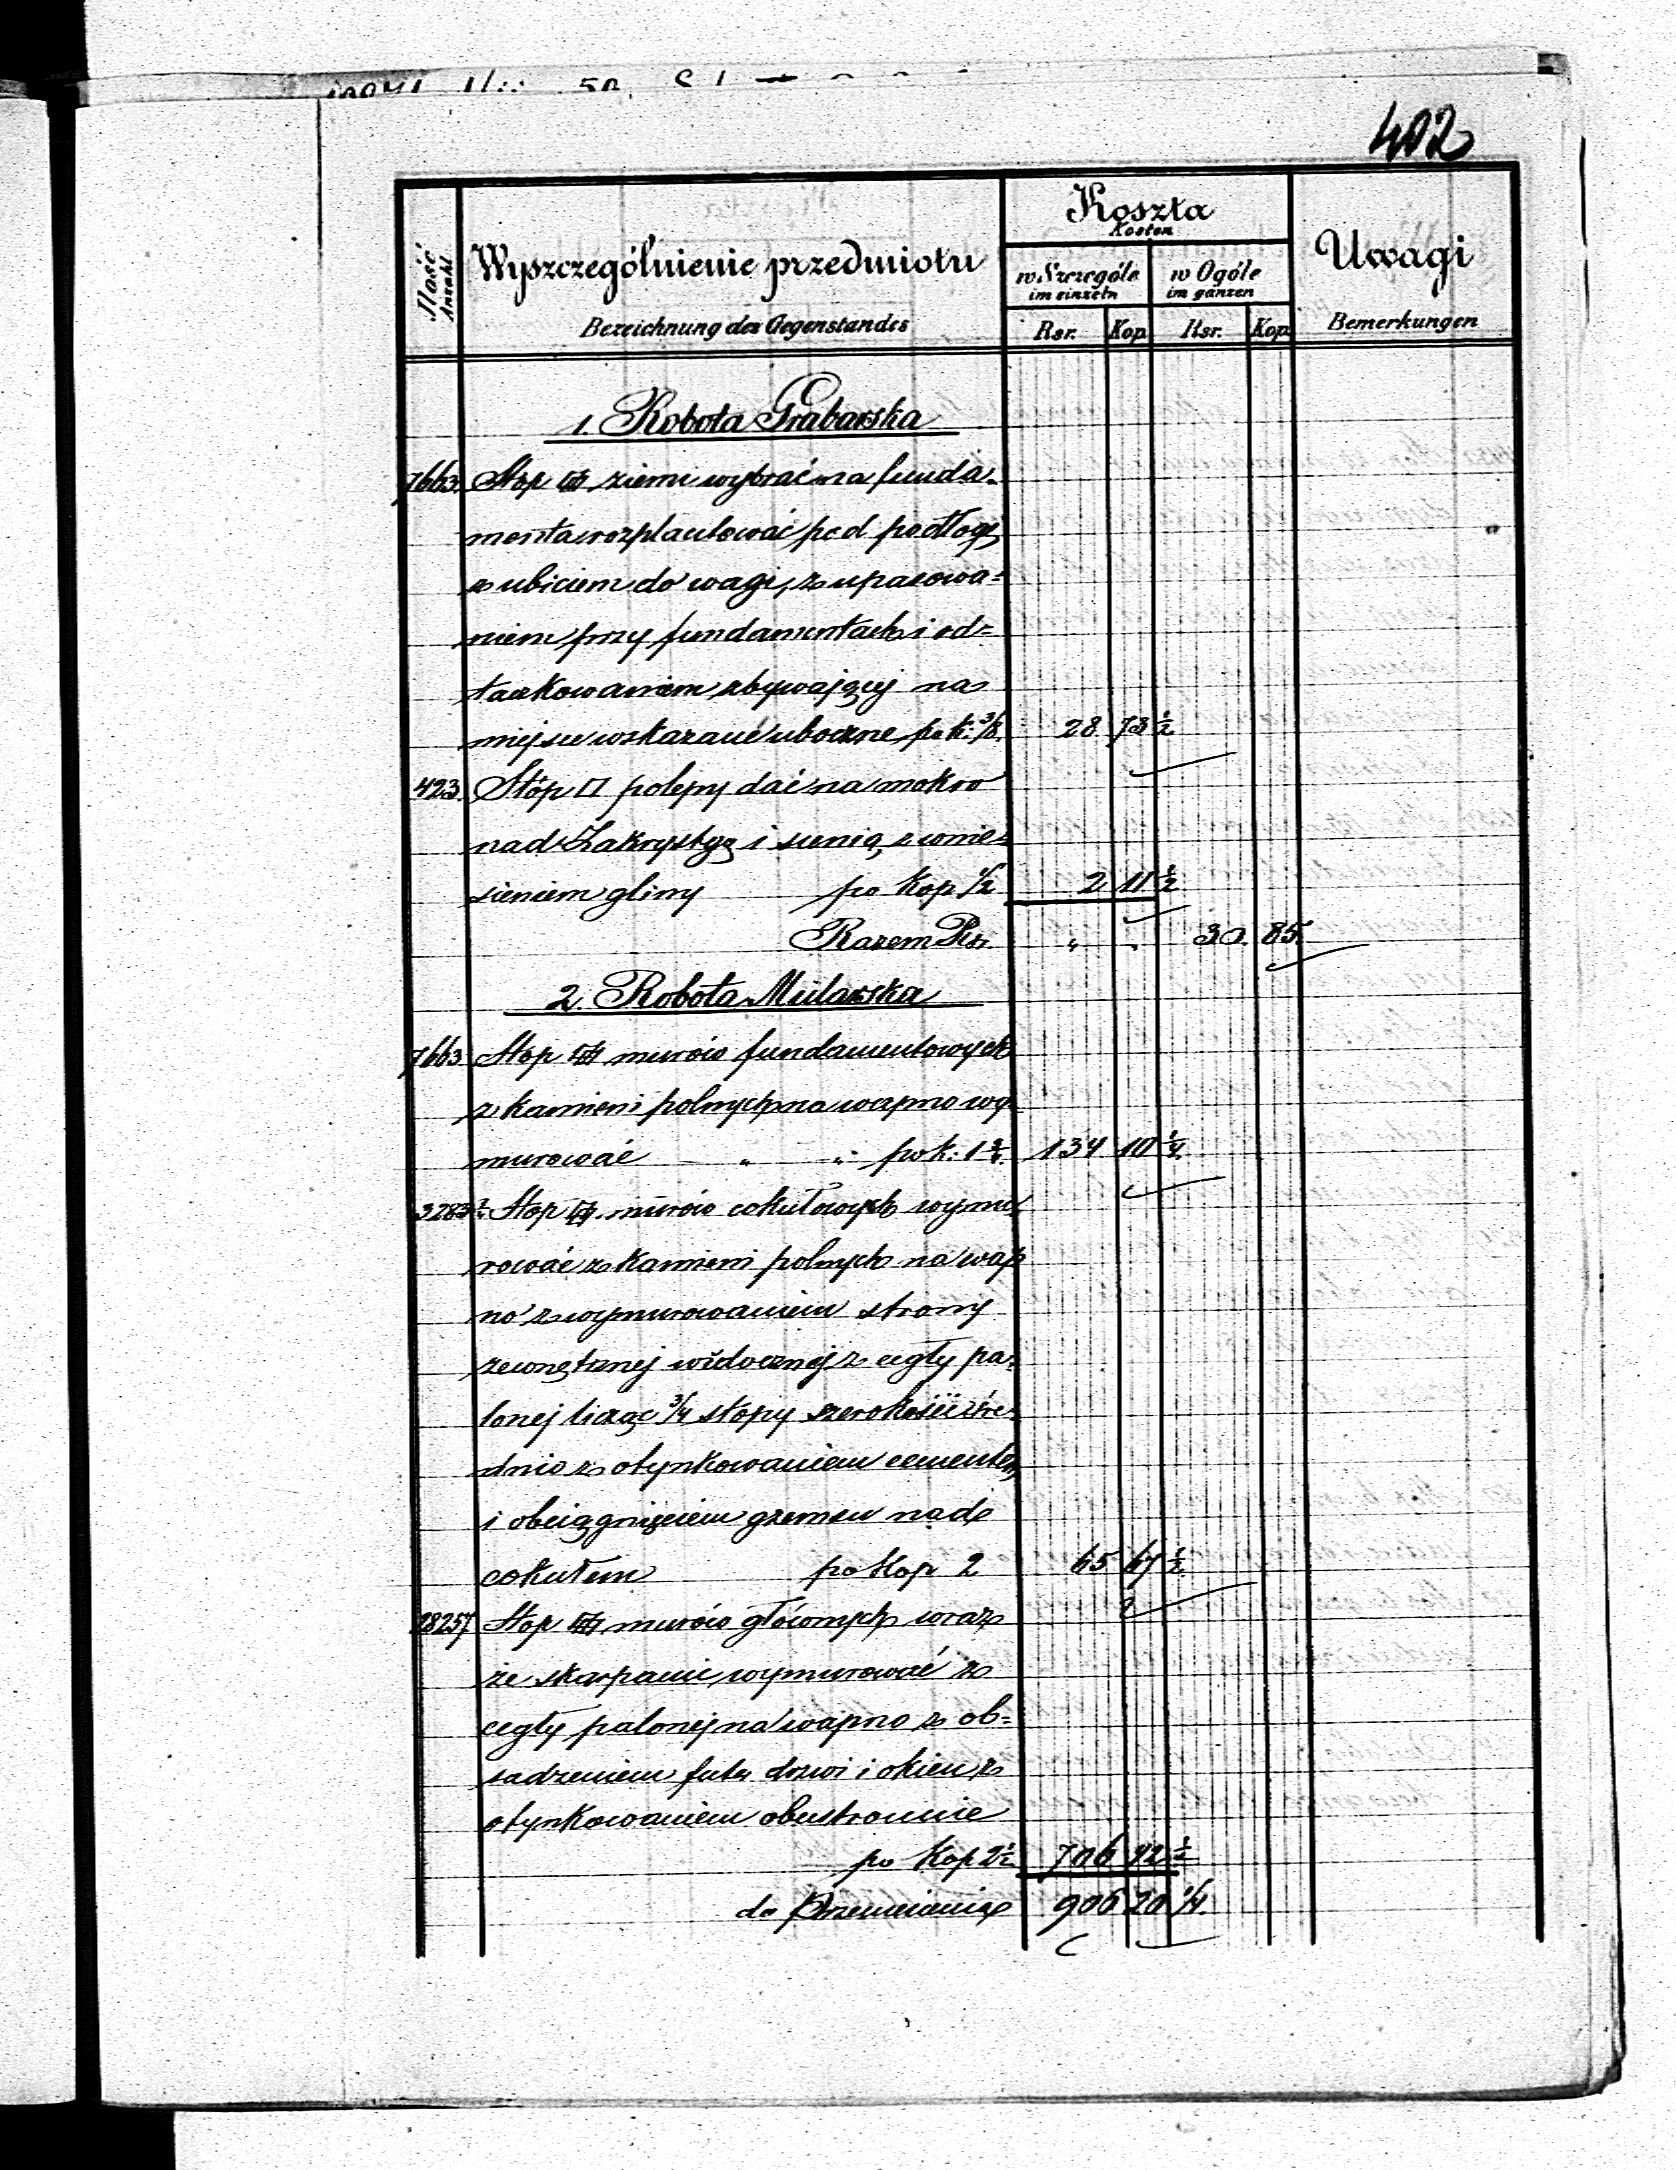 402
Ilość
Anzahl
Wyszczególnienie przedmiotu
Bezeichnung des Gegenstandes
Koszta
Kosten
w Szczególe
im einzeln
w Ogóle
im ganzen
Rsr. Kop. Rsr. Kop.
Uwagi
Bemerkungen
1. Robota Grabarska
7663. Stop ziemi wybrać na funda-
menta rozplantować pod podłogę
z ubiciem do wagi, z upasowa=
niem przy fundamentach i od=
taczkowaniem zbywającej na
miejsce wskazane uboczne, po k: 3/8. 28 73 1/2
423. Stóp □ polepy dać na mokro
nad Zakrystyą i sienią, z wnie-
sieniem gliny po Kop 1/2 2 11 1/2
Razem Rs. " " 30. 85.
2. Robota Mularska
7663 Stop murów fundamentowych
z kamieni polnych na wapno wy-
murować " " po k: 1 3/4. 134 10 1/4
3283 1/2 Stop murów cokułowych wymu-
rować z kamieni polnych na wap
no z wymurowaniem strony
zewnętrznej widocznej z cegły pa-
lonej licząc 3/4 stopy szerokości śre-
dnio z otynkowaniem cementem
i obciągnięciem gzemsu nad
cokułem po Kop 2 65 67 1/2
28257 Stop murów głównych wraz
ze skarpami wymurować z
cegły palonej na wapno z ob=
sadzeniem futr. drzwi i okien z
otynkowaniem obustronnie
po Kop 2 1/2 706 42 1/2
do Przeniesienia 906 20 1/4.